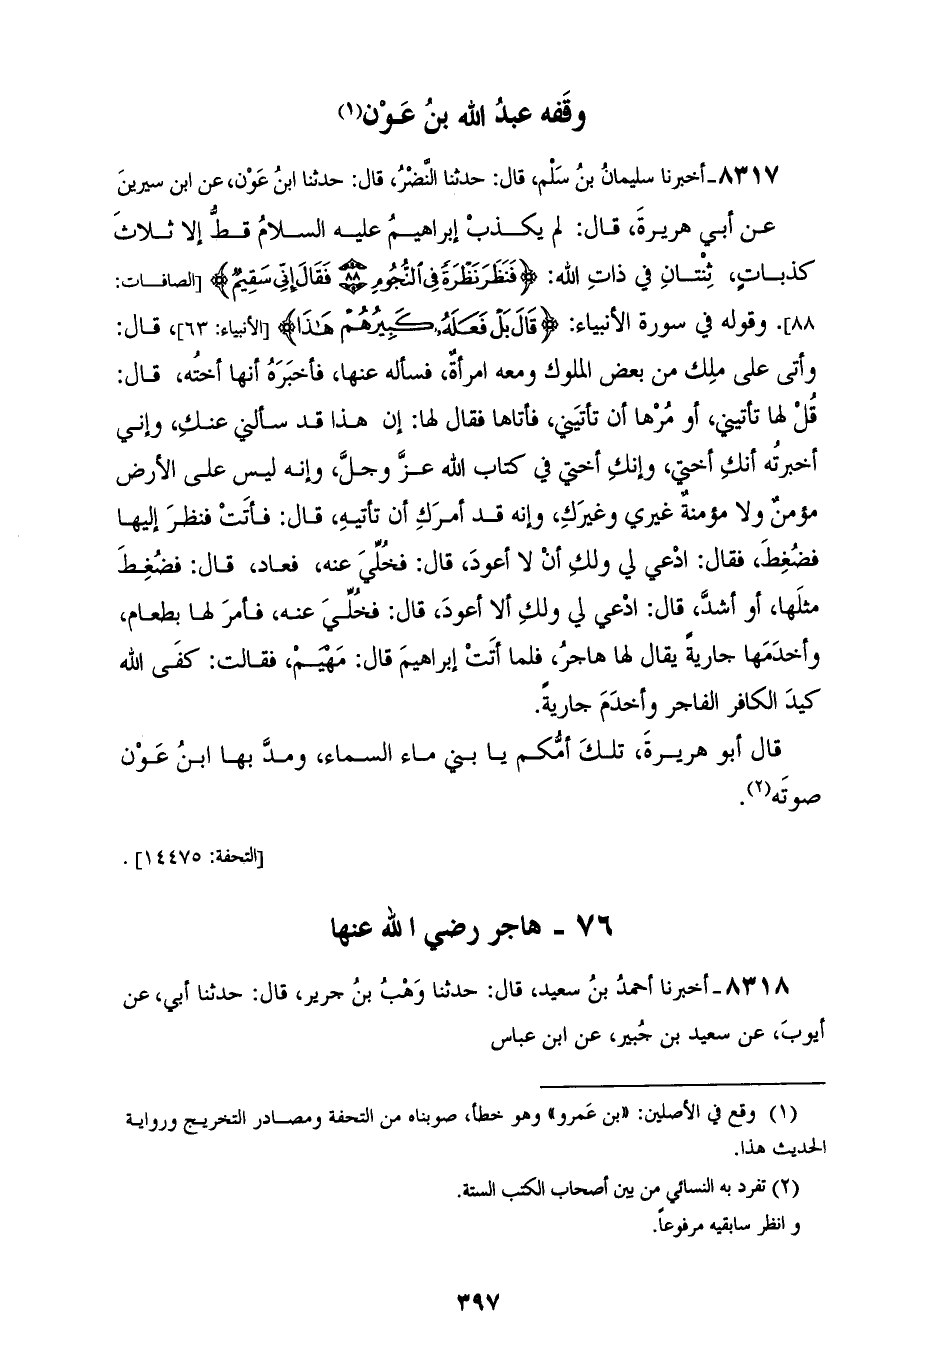 وقَفه عبدُ الله بنُ عَوْن(١)
٨٣١٧ـ أخبرنا سليمانُ بنُ سَلْم، قال: حدثنا النَّضْرُ، قال: حدثنا ابنُ عَوْن، عن ابن سيرينَ
عن أبي هريرةَ، قال: لم يكذبْ إبراهيمُ عليه السلامُ قطُّ إلا ثلاثَ
كذباتٍ، ثِنْتانِ في ذاتِ الله: ﴿فَنَظَرَ نَظْرَةً فِى ٱلنُّجُومِ ٨٨ فَقَالَ إِنِّى سَقِيمٌ﴾ [الصافات:
٨٨]. وقوله في سورة الأنبياء: ﴿قَالَ بَلْ فَعَلَهُۥ كَبِيرُهُمْ هَٰذَا﴾ [الأنبياء: ٦٣]، قال:
وأتى على ملِك من بعض الملوك ومعه امرأةٌ، فسأله عنها، فأخبَرَهُ أنها أختُه، قال:
قُلْ لها تأتيني، أو مُرْها أن تأتيَني، فأتاها فقال لها: إن هذا قد سألني عنكِ، وإني
أخبرتُه أنكِ أختي، وإنكِ أختي في كتاب الله عزَّ وجلَّ، وإنه ليس على الأرض
مؤمنٌ ولا مؤمنةٌ غيري وغيرَكِ، وإنه قد أمرَكِ أن تأتيهِ، قال: فأتَتْ فنظرَ إليها
فضُغِطَ، فقال: ادْعي لي ولكِ أنْ لا أعودَ، قال: فخُلِّيَ عنه، فعاد، قال: فضُغِطَ
مثلَها، أو أشدَّ، قال: ادْعي لي ولكِ ألا أعودَ، قال: فخُلِّيَ عنه، فأمرَ لها بطعام،
وأخدَمَها جاريةً يقال لها هاجرُ، فلما أتَتْ إبراهيمَ قال: مَهْيَمْ، فقالت: كفَى الله
كيدَ الكافر الفاجر وأخدَمَ جاريةً.
قال أبو هريرةَ، تلكَ أمُّكم يا بني ماء السماء، ومدَّ بها ابنُ عَوْن
صوتَه(٢).
[التحفة: ١٤٤٧٥] .
٧٦ - هاجر رضي الله عنها
٨٣١٨ـ أخبرنا أحمدُ بنُ سعيد، قال: حدثنا وَهْبُ بنُ جرير، قال: حدثنا أبي، عن
أيوبَ، عن سعيد بن جُبير، عن ابن عباس
(١) وقع في الأصلين: «ابن عَمرو» وهو خطأ، صوبناه من التحفة ومصادر التخريج ورواية
الحديث هذا.
(٢) تفرد به النسائي من بين أصحاب الكتب الستة.
و انظر سابقيه مرفوعاً.
٣٩٧